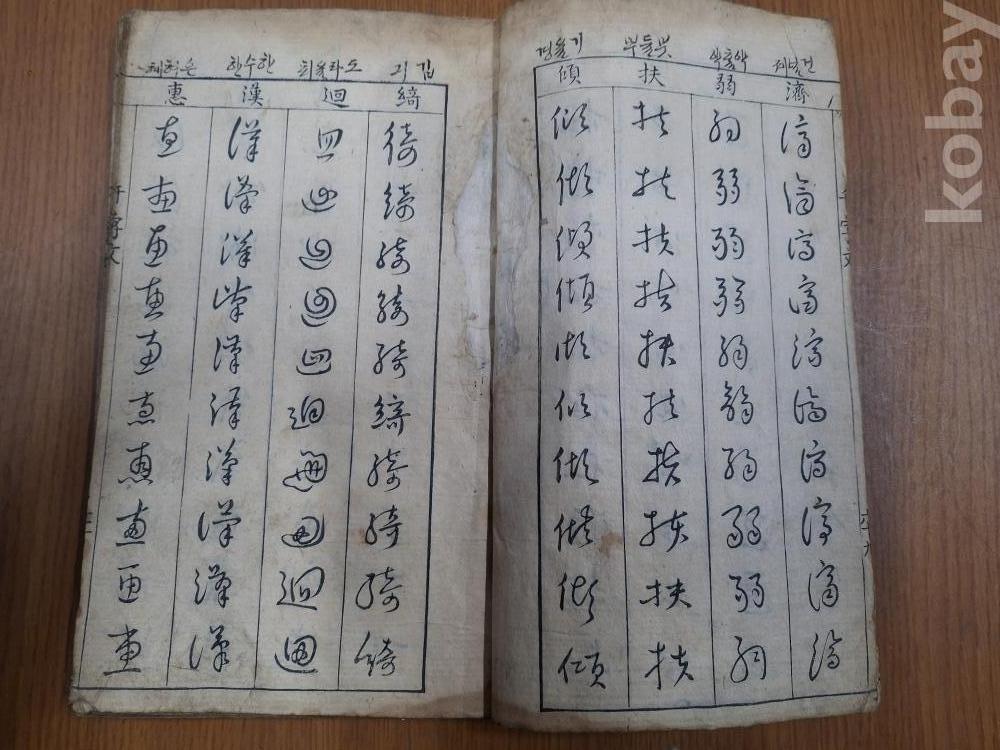 kobay
千字文
깁기
濟
濟濟濟濟濟濟濟濟濟濟
弱
弱弱弱弱弱弱弱弱弱弱
扶
扶扶扶扶扶扶扶扶扶扶
기울경
傾
傾傾傾傾傾傾傾傾傾傾
綺
綺綺綺綺綺綺綺綺綺綺
도라올회
迴
迴迴迴迴迴迴迴迴迴迴
한수한
漢
漢漢漢漢漢漢漢漢漢漢
惠
惠惠惠惠惠惠惠惠惠惠
千字文